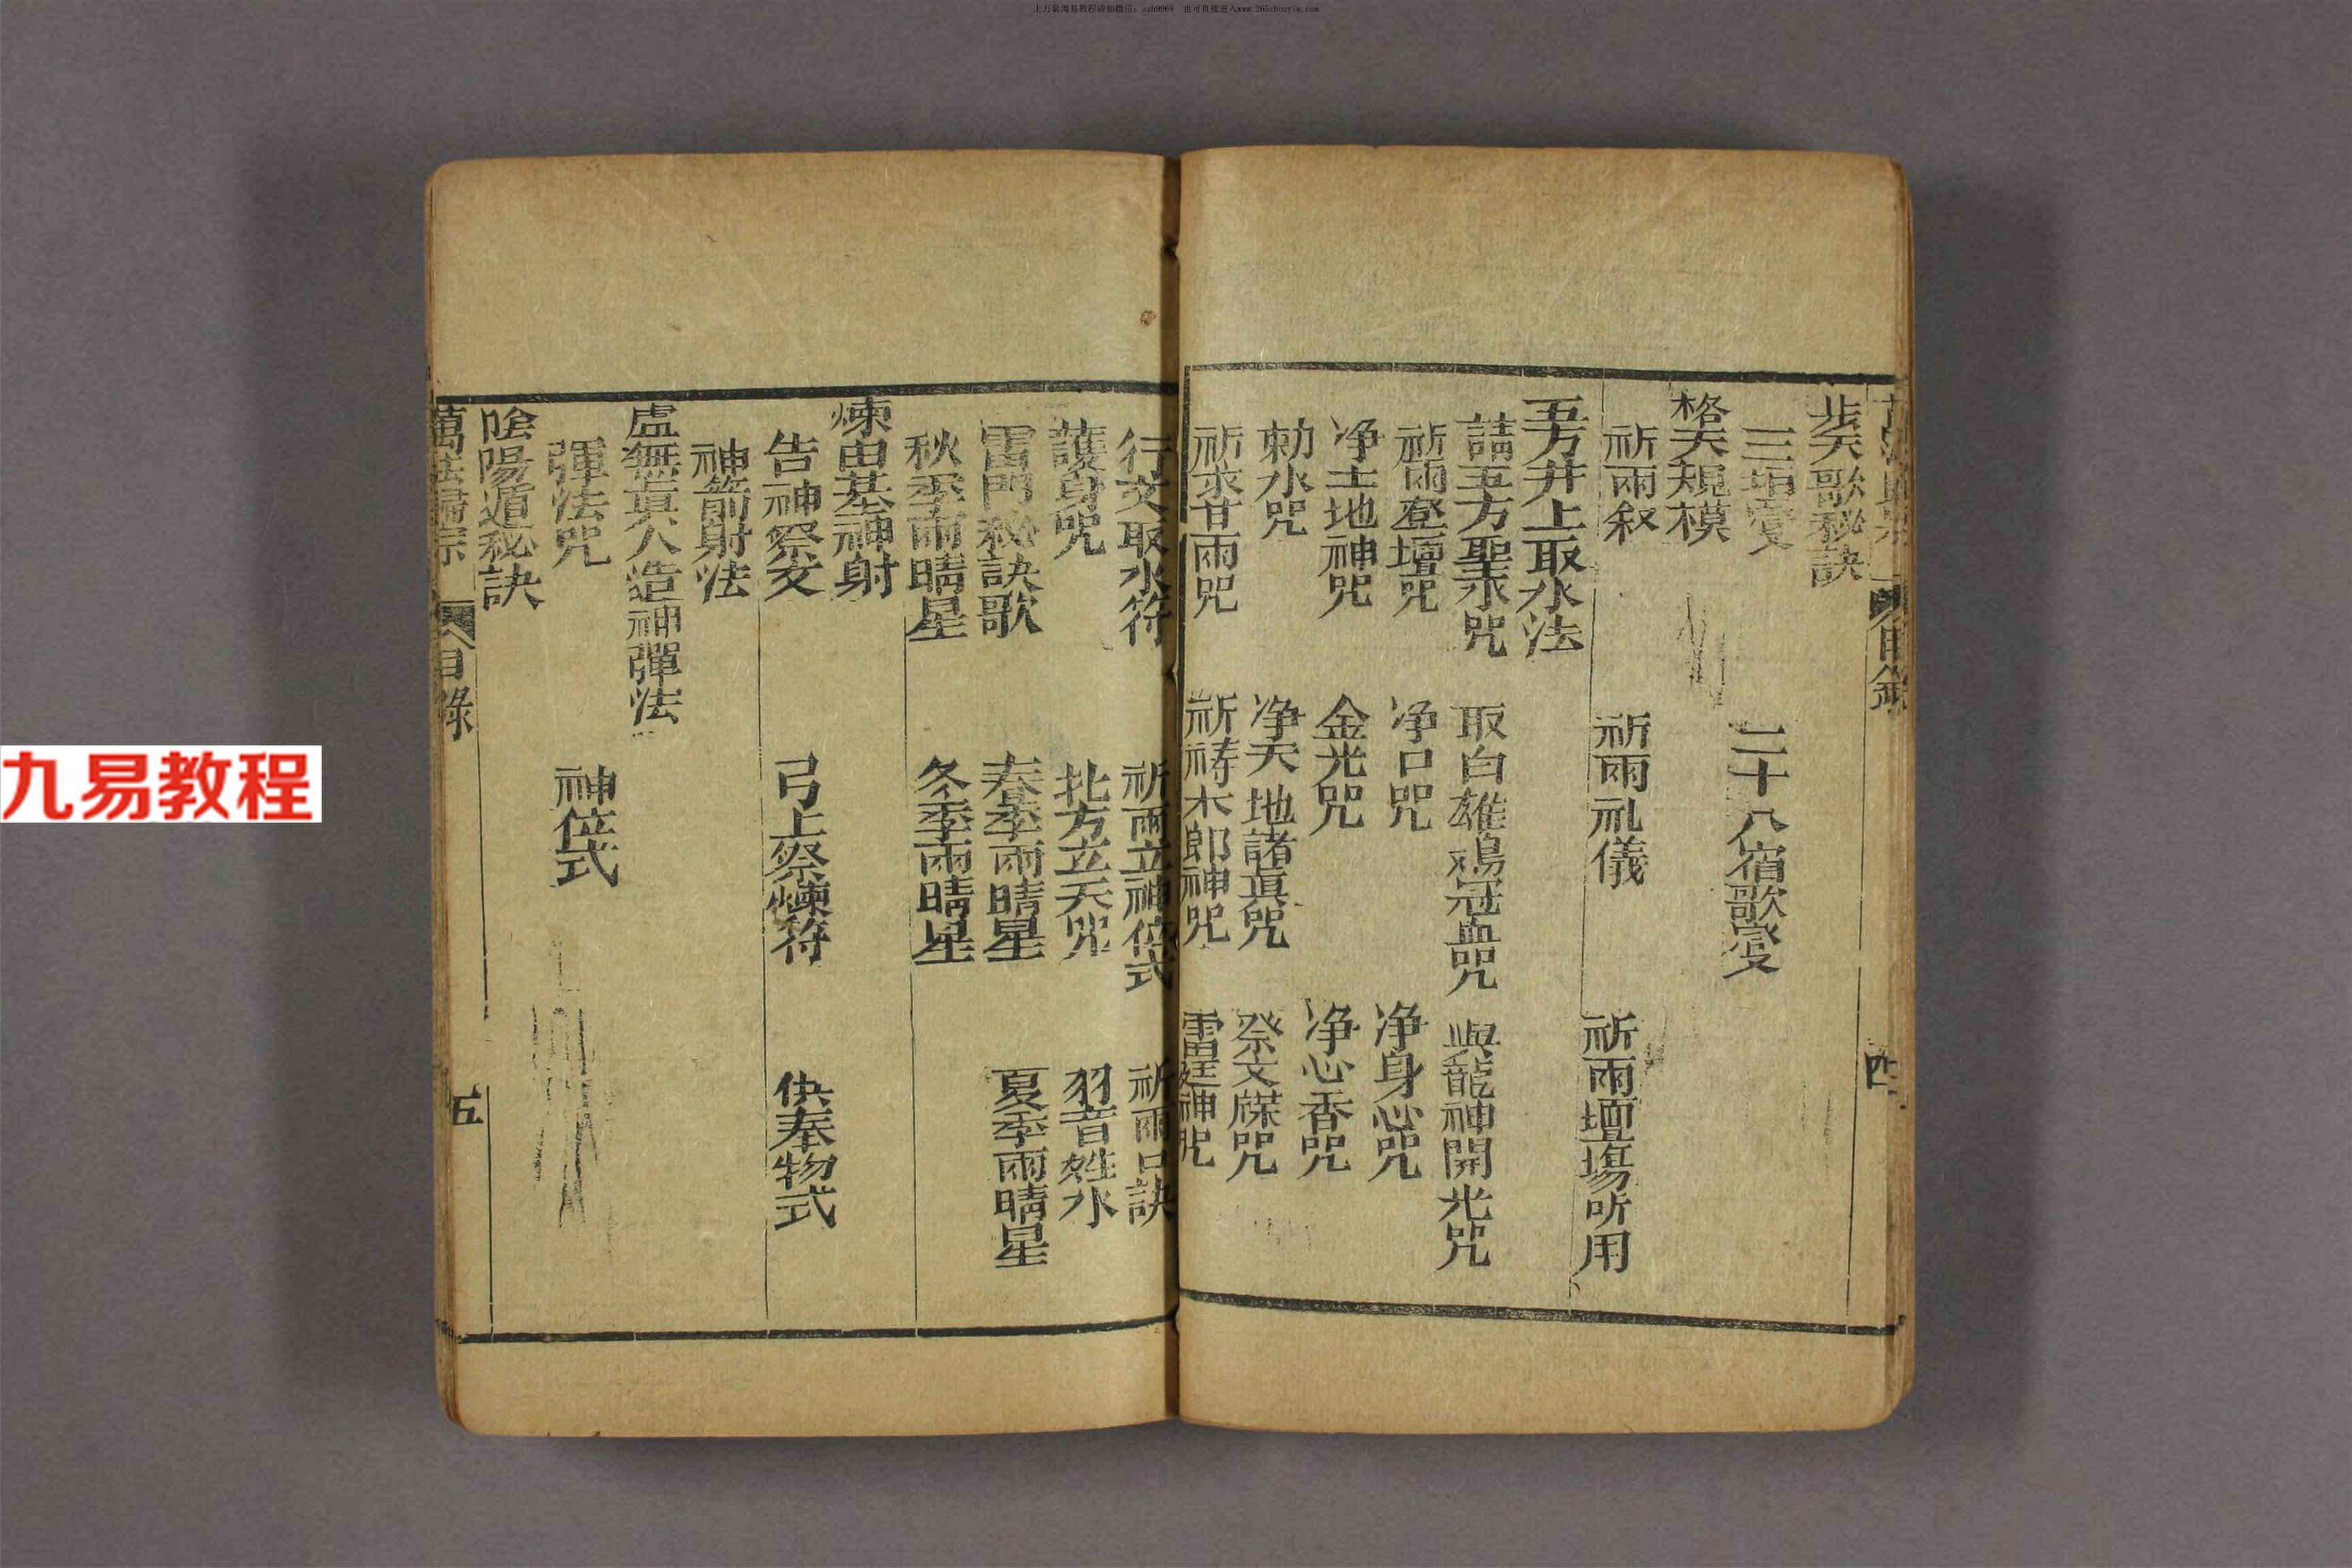 上万套周易教程请加微信：azh9969　也可直接进入www.265zhouyiw.com
九易教程
目錄　四
步天歌秘訣
三垣　二十八宿歌
格天規模
祈雨叙　祈雨礼儀　祈雨壇塲所用
五方井上取水法
請五方聖水咒　取白雄鳮冠血咒　與龍神開光咒
祈雨登壇咒　净口咒　净身心咒
净土地神咒　金光咒　净心香咒
勅水咒　净天地諸真咒　祭文牒咒
祈求甘雨咒　祈祷木郎神咒　雷霆神咒
行文取水符　祈雨立神位式　祈雨口訣
護身咒　北方立天咒　羽音姓水
雷門秘訣歌　春季雨晴星　夏季雨晴星
秋季雨晴星　冬季雨晴星
煉由基神射
告神祭文　弓上祭煉符　供奉物式
神箭射法
虛無真人造神彈法
彈法咒　神位式
陰陽遁秘訣
萬法歸宗　目錄　五